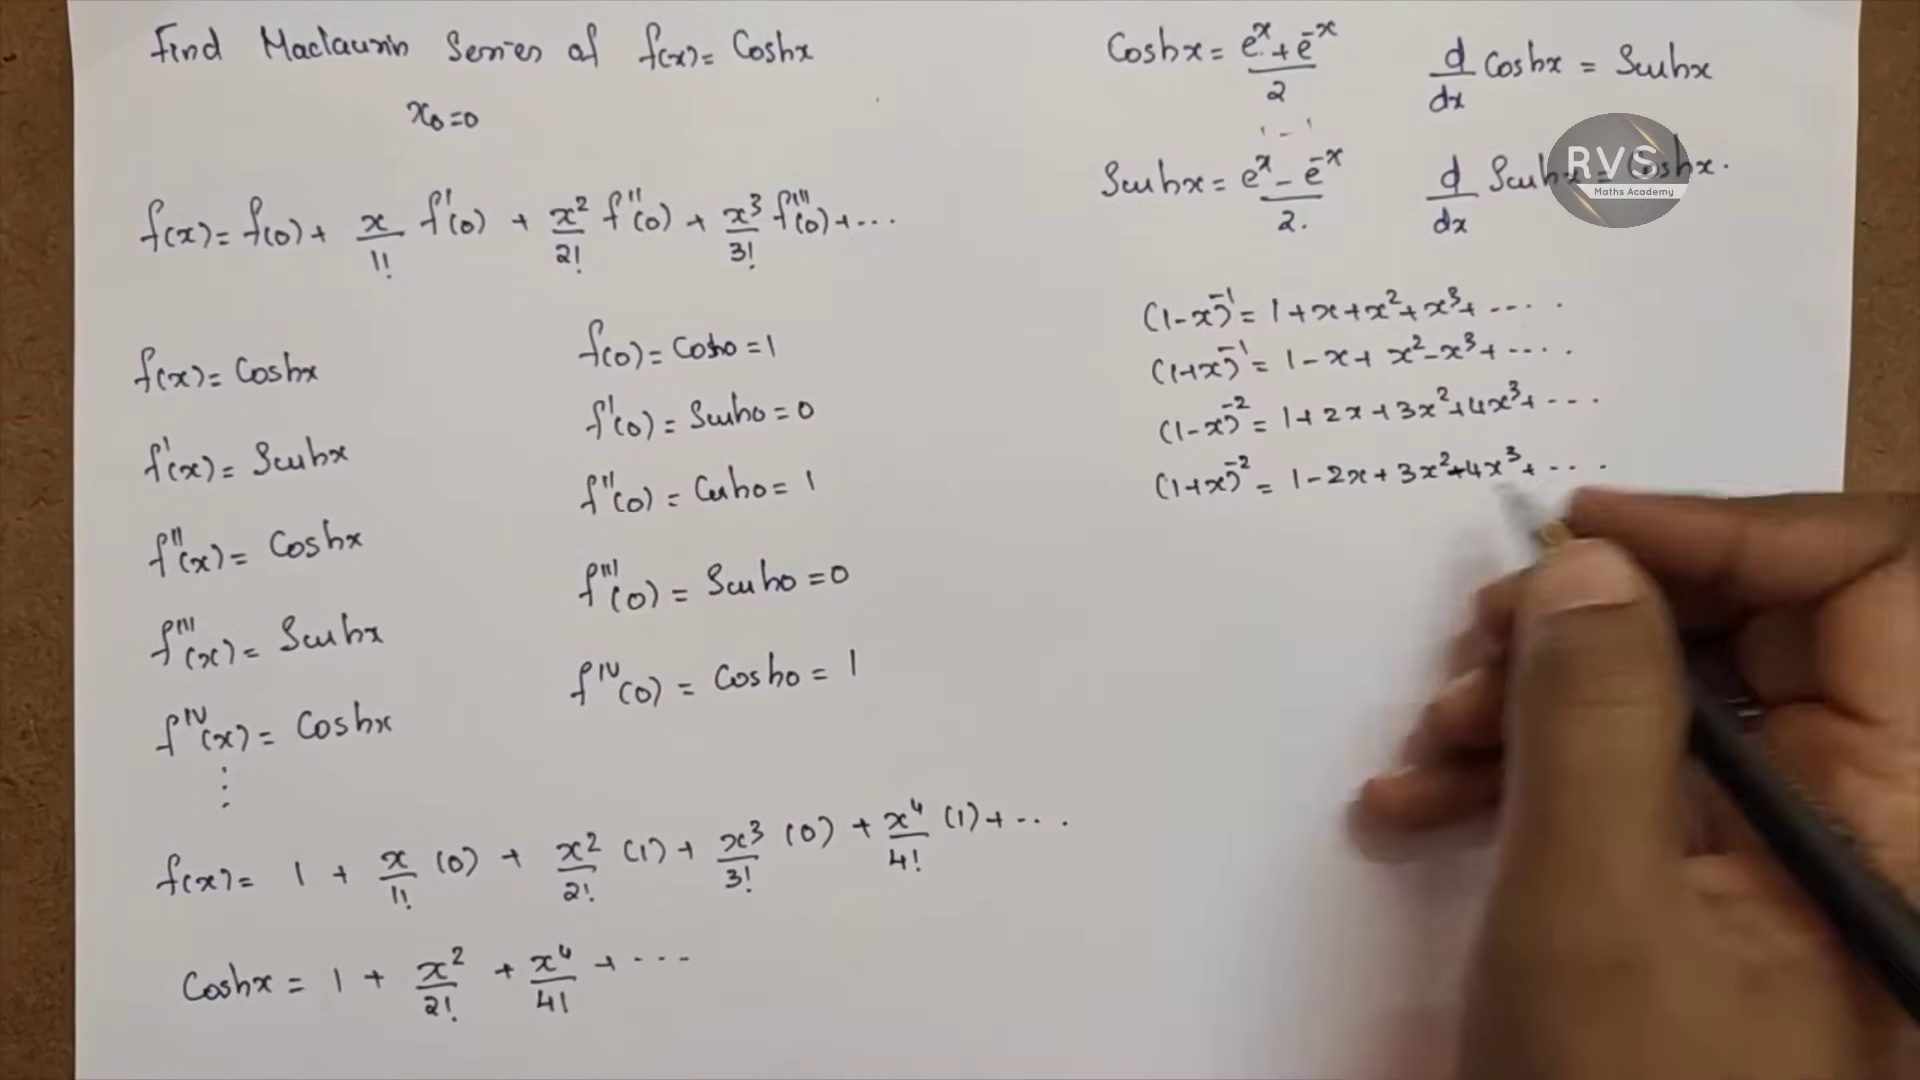 Find Maclaurin Series of f(x) = Coshx
x₀=0
f(x) = f(0) + x/1! f'(0) + x²/2! f''(0) + x³/3! f'''(0) + ...
f(x) = Coshx
f'(x) = Sinhx
f''(x) = Coshx
f'''(x) = Sinhx
f^IV(x) = Coshx
⋮
f(0) = Cosh0 = 1
f'(0) = Sinh0 = 0
f''(0) = Cosh0 = 1
f'''(0) = Sinh0 = 0
f^IV(0) = Cosh0 = 1
f(x) = 1 + x/1! (0) + x²/2! (1) + x³/3! (0) + x⁴/4! (1) + ...
Coshx = 1 + x²/2! + x⁴/4! + ...
Coshx = (e^x + e^-x)/2
d/dx Coshx = Sinhx
Sinhx = (e^x - e^-x)/2.
d/dx Sinhx = Coshx.
RVS
Maths Academy
(1-x)^-1 = 1+x+x²+x³+ ....
(1+x)^-1 = 1-x+x²-x³+ ....
(1-x)^-2 = 1+2x+3x²+4x³+ ...
(1+x)^-2 = 1-2x+3x²-4x³+ ...